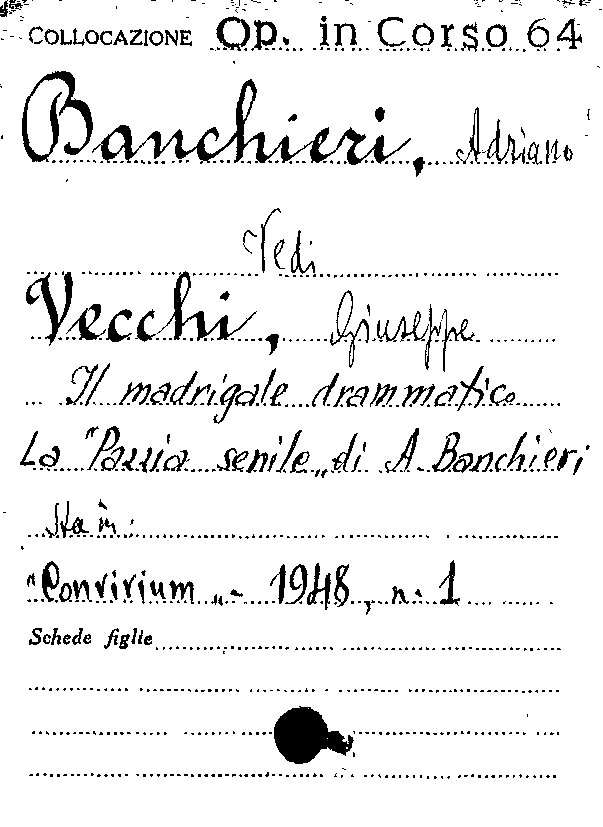 COLLOCAZIONE Op. in Corso 64
Banchieri, Adriano
Vedi
Vecchi, Giuseppe
Il madrigale drammatico
La "Pazzia senile„ di A. Banchieri
Sta in:
"Convivium„ - 1948, n. 1
Schede figlie